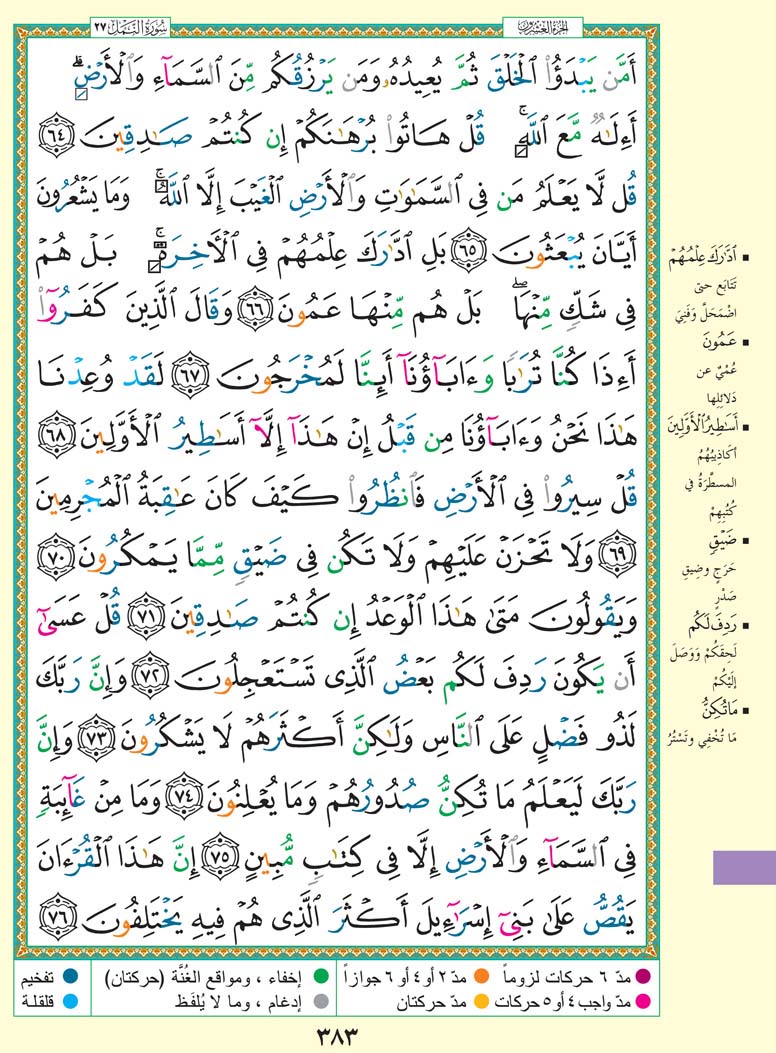 الجزء العشرون
سورة النمل ٢٧
أَمَّن يَبْدَؤُا۟ ٱلْخَلْقَ ثُمَّ يُعِيدُهُۥ وَمَن يَرْزُقُكُم مِّنَ ٱلسَّمَآءِ وَٱلْأَرْضِ ۗ
أَءِلَٰهٌ مَّعَ ٱللَّهِ ۚ قُلْ هَاتُوا۟ بُرْهَٰنَكُمْ إِن كُنتُمْ صَٰدِقِينَ ٦٤
قُل لَّا يَعْلَمُ مَن فِى ٱلسَّمَٰوَٰتِ وَٱلْأَرْضِ ٱلْغَيْبَ إِلَّا ٱللَّهُ ۚ وَمَا يَشْعُرُونَ
أَيَّانَ يُبْعَثُونَ ٦٥ بَلِ ٱدَّٰرَكَ عِلْمُهُمْ فِى ٱلْءَاخِرَةِ ۚ بَلْ هُمْ
فِى شَكٍّ مِّنْهَا ۖ بَلْ هُم مِّنْهَا عَمُونَ ٦٦ وَقَالَ ٱلَّذِينَ كَفَرُوٓا۟
أَءِذَا كُنَّا تُرَٰبًا وَءَابَآؤُنَآ أَئِنَّا لَمُخْرَجُونَ ٦٧ لَقَدْ وُعِدْنَا
هَٰذَا نَحْنُ وَءَابَآؤُنَا مِن قَبْلُ إِنْ هَٰذَآ إِلَّآ أَسَٰطِيرُ ٱلْأَوَّلِينَ ٦٨
قُلْ سِيرُوا۟ فِى ٱلْأَرْضِ فَٱنظُرُوا۟ كَيْفَ كَانَ عَٰقِبَةُ ٱلْمُجْرِمِينَ
٦٩ وَلَا تَحْزَنْ عَلَيْهِمْ وَلَا تَكُن فِى ضَيْقٍ مِّمَّا يَمْكُرُونَ ٧٠
وَيَقُولُونَ مَتَىٰ هَٰذَا ٱلْوَعْدُ إِن كُنتُمْ صَٰدِقِينَ ٧١ قُلْ عَسَىٰٓ
أَن يَكُونَ رَدِفَ لَكُم بَعْضُ ٱلَّذِى تَسْتَعْجِلُونَ ٧٢ وَإِنَّ رَبَّكَ
لَذُو فَضْلٍ عَلَى ٱلنَّاسِ وَلَٰكِنَّ أَكْثَرَهُمْ لَا يَشْكُرُونَ ٧٣ وَإِنَّ
رَبَّكَ لَيَعْلَمُ مَا تُكِنُّ صُدُورُهُمْ وَمَا يُعْلِنُونَ ٧٤ وَمَا مِنْ غَآئِبَةٍ
فِى ٱلسَّمَآءِ وَٱلْأَرْضِ إِلَّا فِى كِتَٰبٍ مُّبِينٍ ٧٥ إِنَّ هَٰذَا ٱلْقُرْءَانَ
يَقُصُّ عَلَىٰ بَنِىٓ إِسْرَٰٓءِيلَ أَكْثَرَ ٱلَّذِى هُمْ فِيهِ يَخْتَلِفُونَ ٧٦
▪ ٱدَّٰرَكَ عِلْمُهُمْ
تَتَابَع حتى
اضْمَحَلَّ وَفَنِيَ
▪ عَمُونَ
عُمْيٌ عن
دَلائِلِها
▪ أَسَٰطِيرُ ٱلْأَوَّلِينَ
أكاذِيبُهُمُ
المسطَّرَةُ في
كُتُبِهِمْ
▪ ضَيْقٍ
حَرَجٍ وضِيقِ
صَدْرٍ
▪ رَدِفَ لَكُم
لَحِقَكُمْ وَوَصَلَ
إلَيْكُمْ
▪ مَا تُكِنُّ
مَا تُخْفِي وتَسْتُرُ
مدّ ٦ حركات لزوماً مدّ ٢ أو ٤ أو ٦ جوازاً إخفاء ، ومواقع الغُنَّة (حركتان) تفخيم
مدّ واجب ٤ أو ٥ حركات مدّ حركتان إدغام ، وما لا يُلفَظ قلقلة
٣٨٣